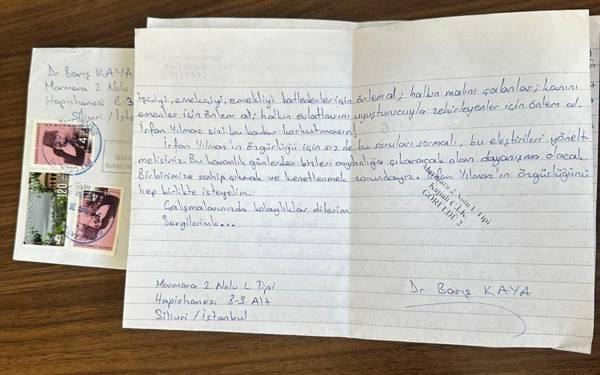 Dr Barış KAYA
Marmara 2 Nolu
Hapishanesi B-3
Silivri / İsta
işçiyi, emekçiyi, emekliyi katledenler için önlem al; halkın malını çalanlar; kanını
emenler için önlem al; halkın evlatlarını uyuşturucuyla zehirleyenler için önlem al.
İrfan Yılmaz sizi bu kadar korkutmasın!
İrfan Yılmaz'ın özgürlüğü için siz de bu soruları sormalı, bu eleştirileri yönelt
melisiniz. Bu karanlık günlerden bizleri aydınlığa çıkaracak olan dayanışma olacak.
Birbirimize sahip çıkmak ve kenetlenmek zorundayız. İrfan Yılmaz'ın özgürlüğünü
hep birlikte isteyelim.
Çalışmalarınızda kolaylıklar dilerim.
Sevgilerimle...
Marmara 2 Nolu L Tipi
Kapalı C.İ.K.
GÖRÜLDÜ 2
Marmara 2 Nolu L Tipi
Hapishanesi B-9 Alt
Silivri / İstanbul
Dr Barış KAYA
120